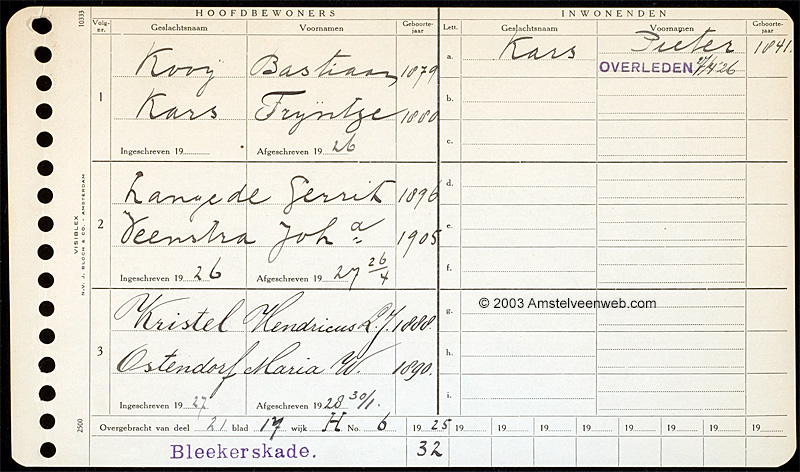 HOOFDBEWONERS
INWONENDEN
Volg-nr.
Geslachtsnaam
Voornamen
Geboorte-jaar
Lett.
Geslachtsnaam
Voornamen
Geboorte-jaar
10333
1
Kooij Bastiaan 1879
Kars Fryntge 1880
Ingeschreven 19
Afgeschreven 19 26
a. Kars Pieter 1841.
OVERLEDEN 27/4 '26
b.
c.
2
Lange de Gerrit 1896
Veenstra Joh a 1905
Ingeschreven 19 26
Afgeschreven 19 27 26/4
d.
e.
f.
VISIBLEX
N.V. J. BLOCH & CO. AMSTERDAM
3
Kristel Hendricus L.J. 1888.
Ostendorf Maria W. 1890.
Ingeschreven 19 27
Afgeschreven 19 28 30/1.
g.
© 2003 Amstelveenweb.com
h.
i.
2500
Overgebracht van deel 21 blad 17 wijk H No. 6
19 25 19 19 19 19 19 19 19 19
Bleekerskade.
32